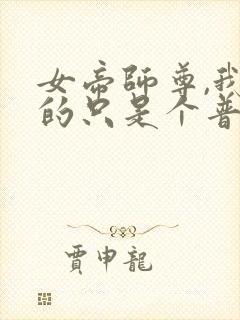 女帝師尊,我
的只是个普
賈申龍